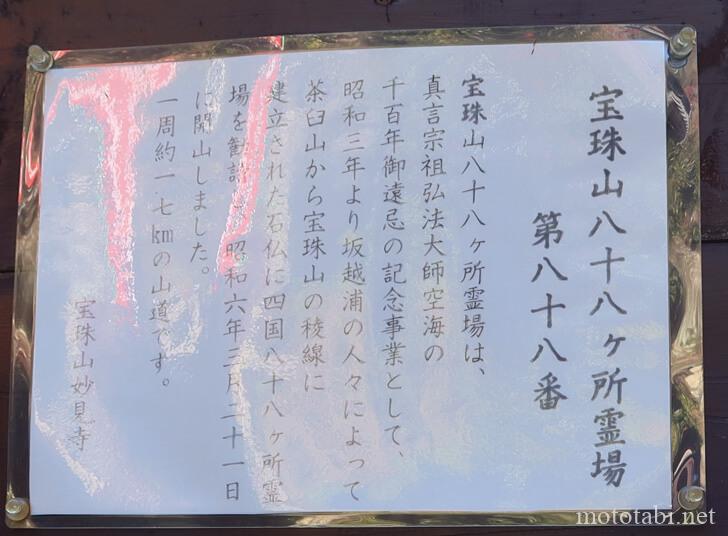 宝珠山八十八ヶ所霊場
第八十八番
宝珠山八十八ヶ所霊場は、
真言宗祖弘法大師空海の
千百年御遠忌の記念事業として、
昭和三年より坂越浦の人々によって
茶臼山から宝珠山の稜線に
建立された石仏に四国八十八ヶ所霊
場を勧請し、昭和六年三月二十一日
に開山しました。
一周約一.七㎞の山道です。
宝珠山妙見寺
mototabi.net